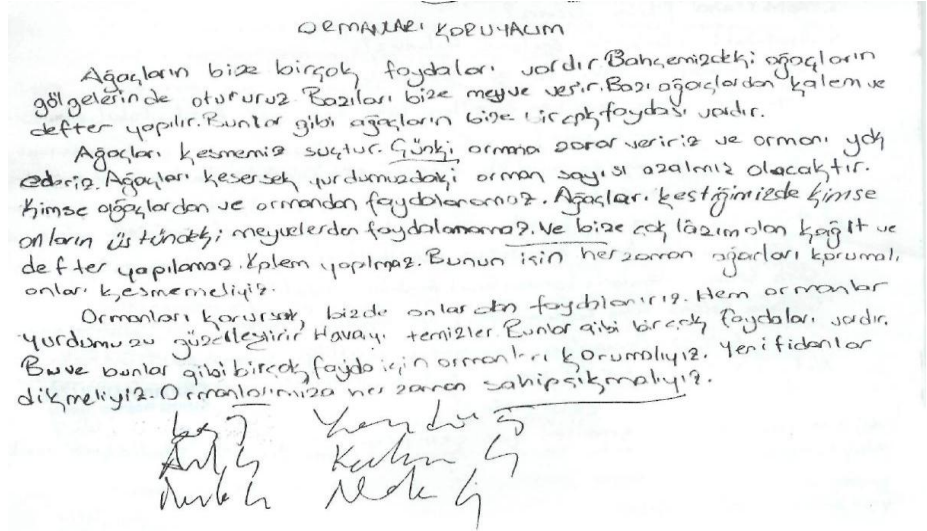 ORMANLARI KORUYALIM
Ağaçların bize birçok faydaları vardır. Bahçemizdeki ağaçların
gölgelerinde otururuz. Bazıları bize meyve verir. Bazı ağaçlardan kalem ve
defter yapılır. Bunlar gibi ağaçların bize birçok faydası vardır.
Ağaçları kesmemiz suçtur. Çünki ormana zarar veririz ve ormanı yok
ederiz. Ağaçları kesersek yurdumuzdaki orman sayısı azalmız olacaktır.
Kimse ağaçlardan ve ormandan faydalanamaz. Ağaçları kestiğimizde kimse
onların üstündeki meyvelerden faydalanamaz. Ve bize çok lazım olan kağıt ve
defter yapılamaz. Kalem yapılmaz. Bunun için her zaman ağaçları korumalı,
onları kesmemeliyiz.
Ormanları korursak, bizde onlardan faydalanırız. Hem ormanlar
yurdumuzu güzelleştirir Havayı temizler. Bunlar gibi birçok faydaları vardır.
Bu ve bunlar gibi birçok fayda için ormanları korumalıyız. Yeni fidanlar
dikmeliyiz. Ormanlarımıza her zaman sahip sıkmalıyız.